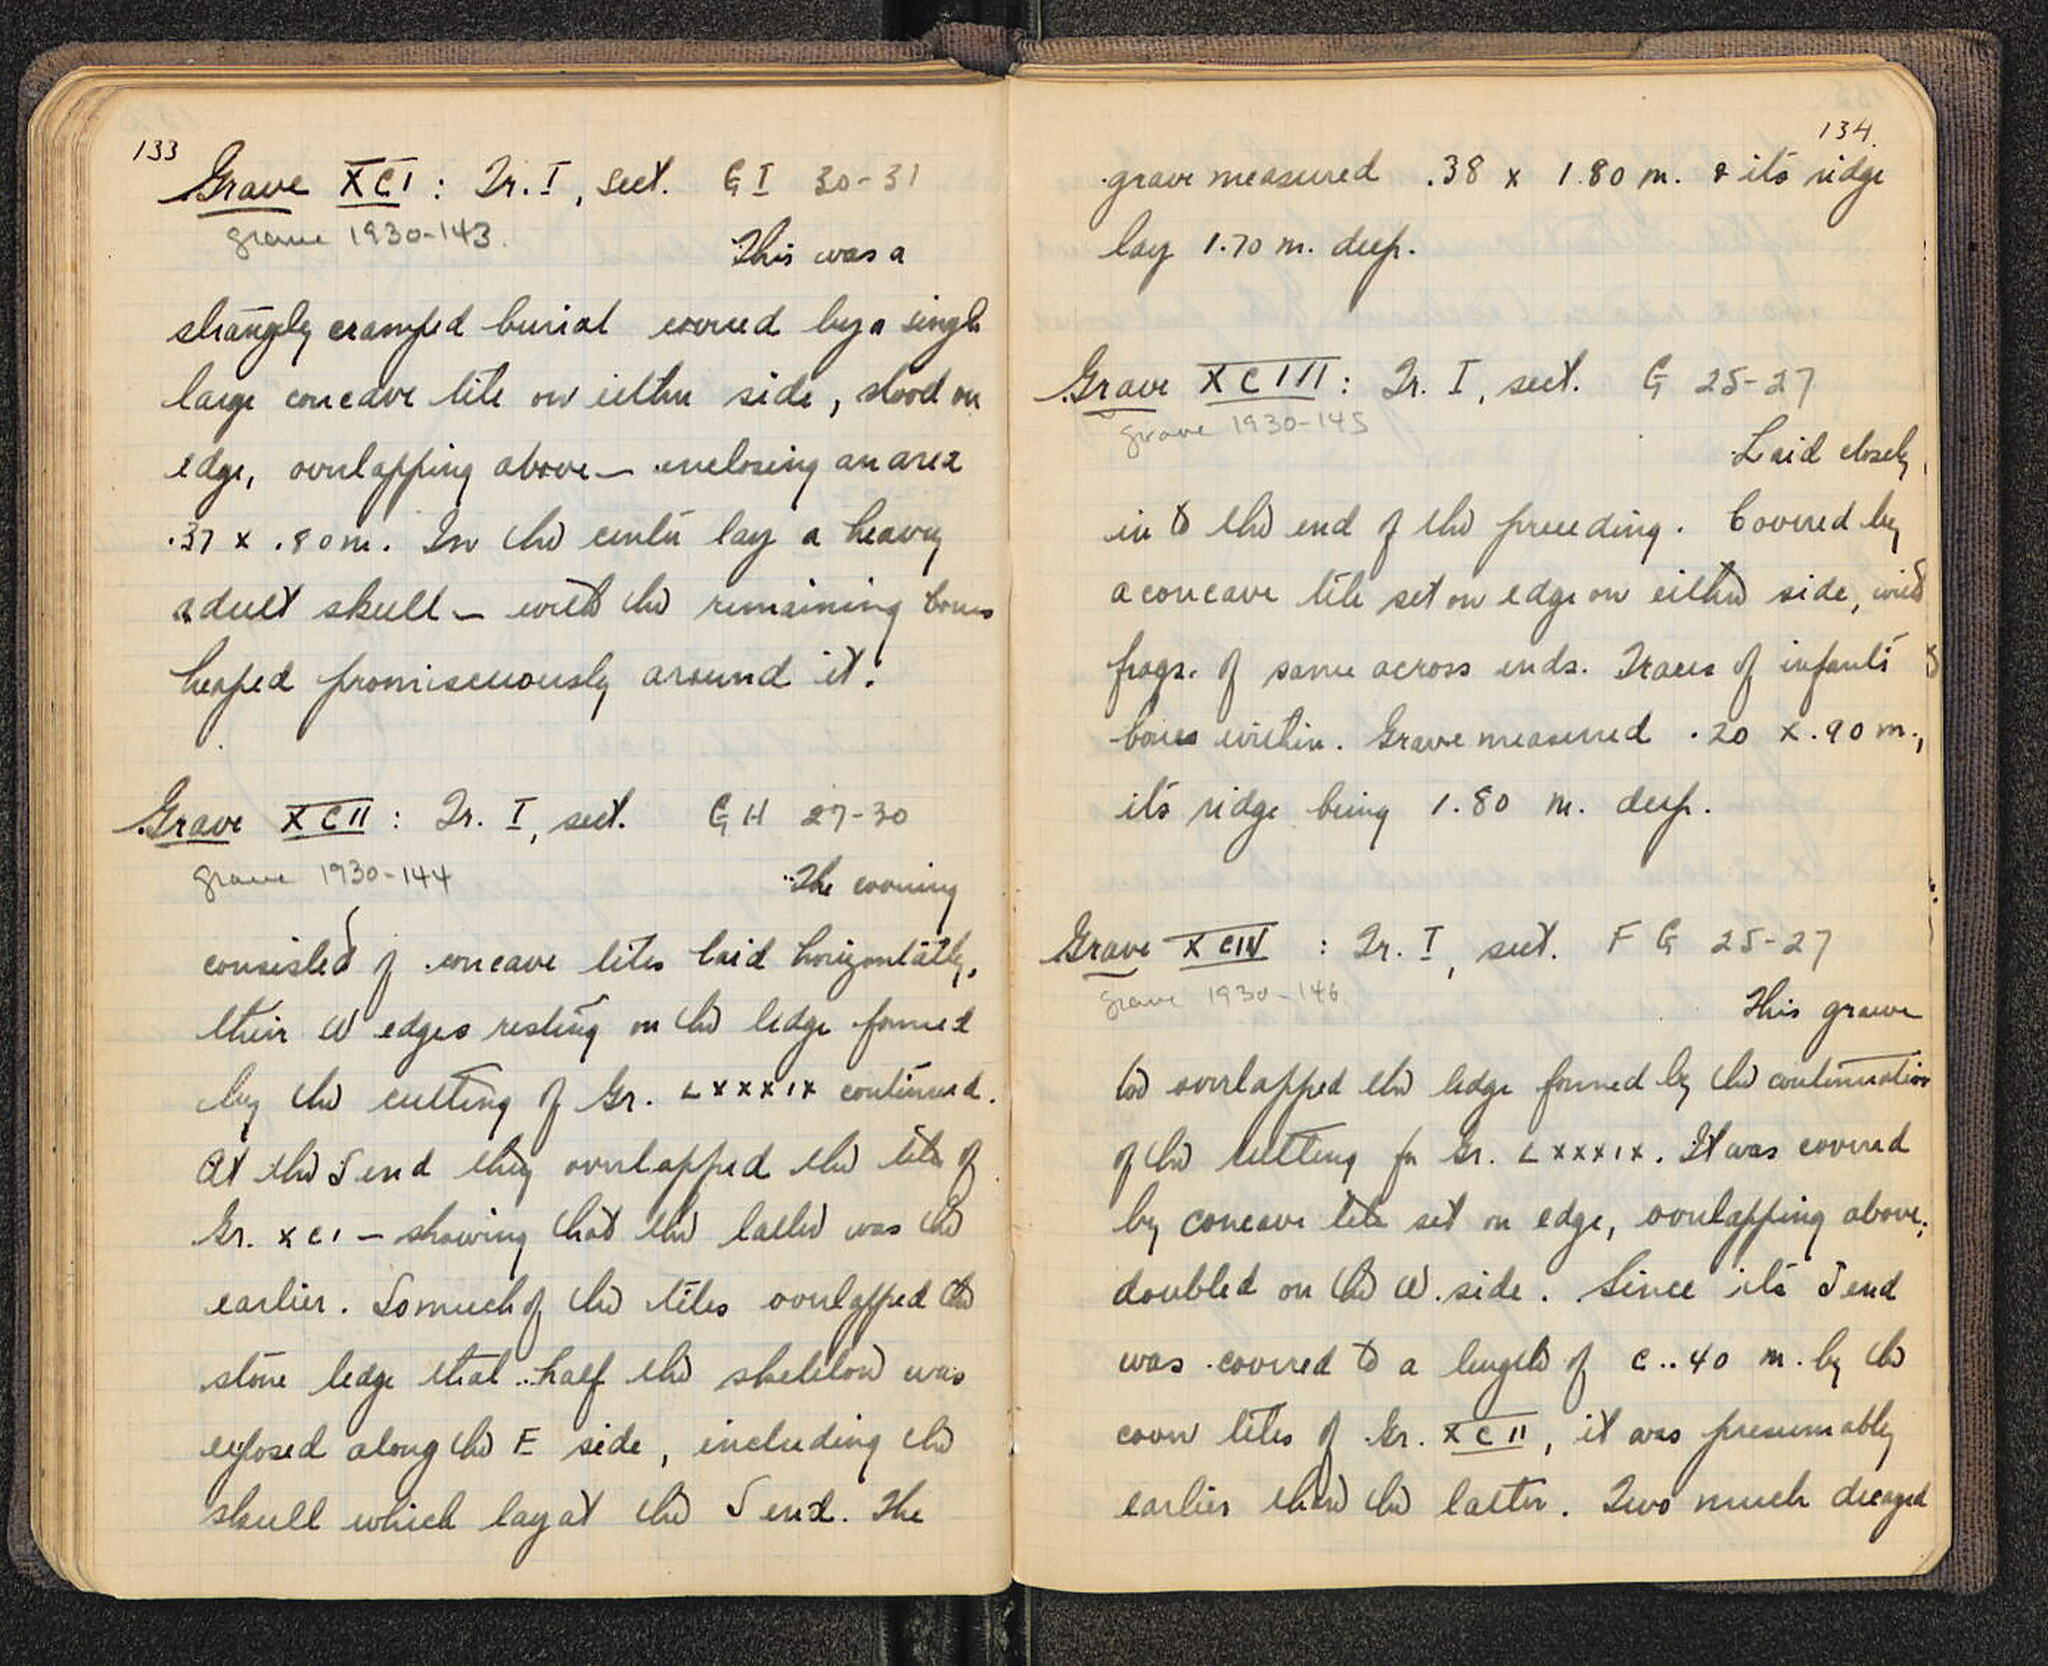 133
Grave XCI : Tr. I, sect. G I 30-31
grave 1930-143.
This was a
strangely cramped burial covered by a single
large concave tile on either side, stood on
edge, overlapping above — enclosing an area
.37 x .80 m. In the center lay a heavy
adult skull — with the remaining bones
heaped promiscuously around it.
Grave XCII : Tr. I, sect. G H 27-30
grave 1930-144
The covering
consisted of concave tiles laid horizontally,
their W edges resting on the ledge formed
by the cutting of Gr. LXXXIX continued.
At the S end they overlapped the tile of
Gr. XCI — showing that the latter was the
earlier. So much of the tiles overlapped the
stone ledge that half the skeleton was
exposed along the E side, including the
skull which lay at the S end. The
134.
grave measured .38 x 1.80 m. & its ridge
lay 1.70 m. deep.
Grave XCIII : Tr. I, sect. G 25-27
grave 1930-145
Laid closely
in to the end of the preceding. Covered by
a concave tile set on edge on either side, with
frags. of same across ends. Traces of infant's
bones within. Grave measured .20 x .90 m.,
its ridge being 1.80 m. deep.
Grave XCIV : Tr. I, sect. F G 25-27
grave 1930-146
This grave
too overlapped the ledge formed by the continuation
of the cutting for Gr. LXXXIX. It was covered
by concave tile set on edge, overlapping above,
doubled on the W. side. Since its S end
was covered to a length of c. .40 m. by the
cover tiles of Gr. XCII, it was presumably
earlier than the latter. Two much decayed